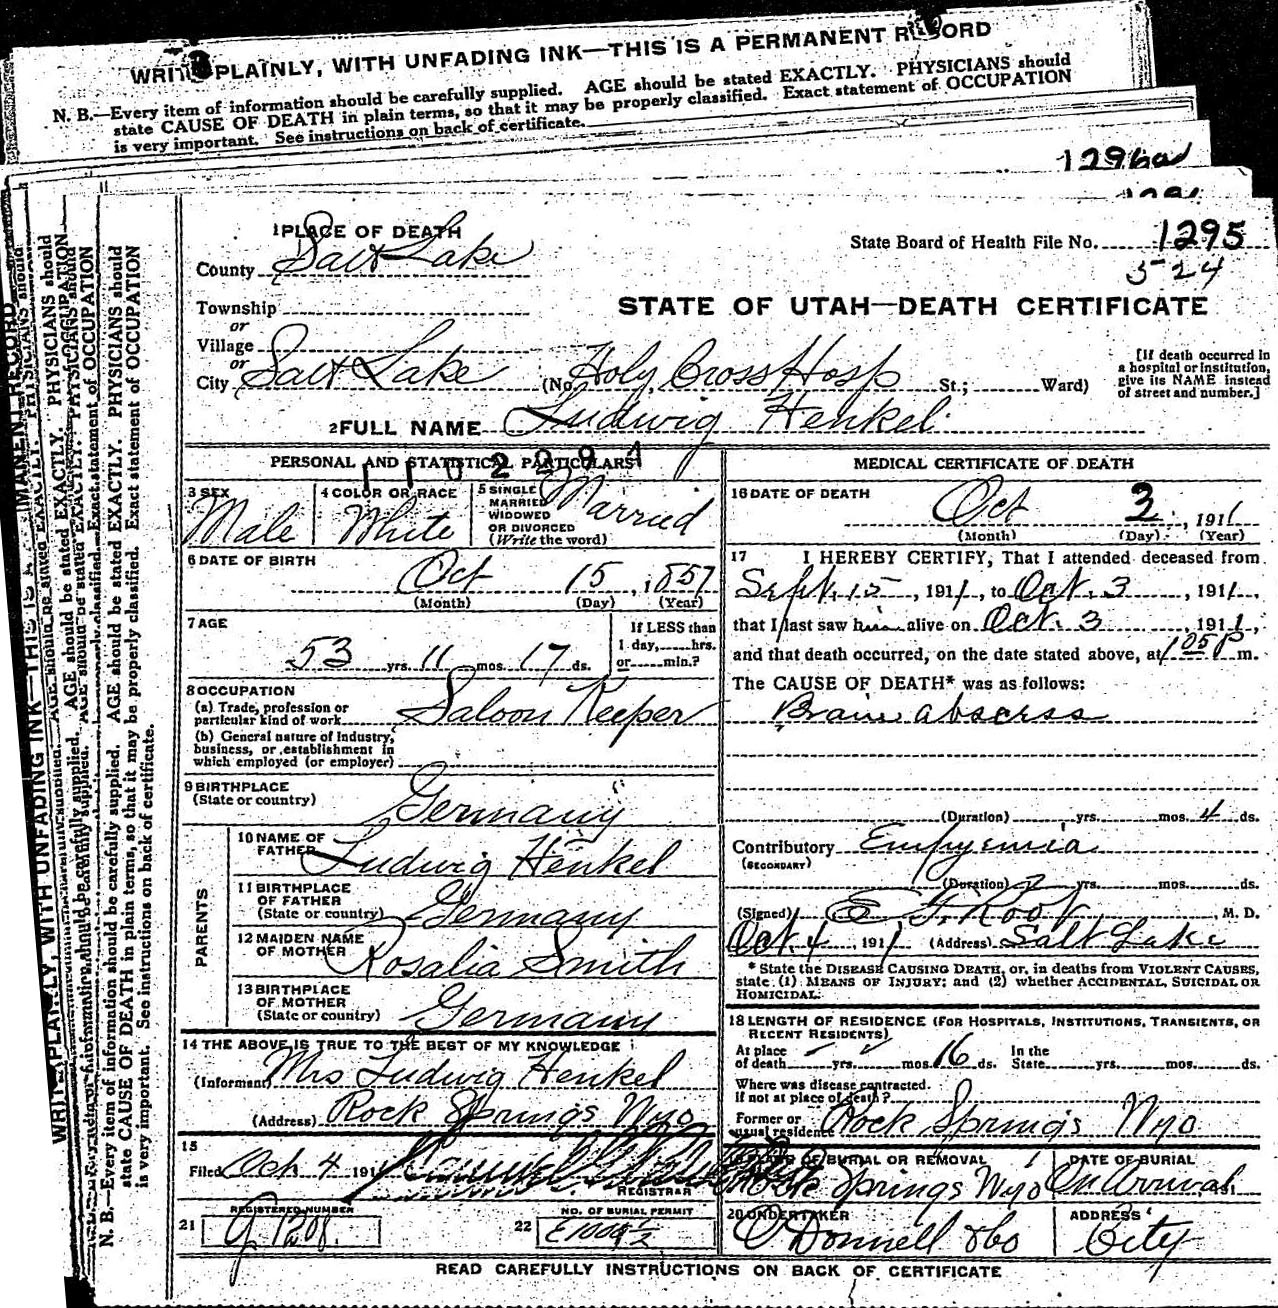 WRITE PLAINLY, WITH UNFADING INK—THIS IS A PERMANENT RECORD
N. B.—Every item of information should be carefully supplied. AGE should be stated EXACTLY. PHYSICIANS should
state CAUSE OF DEATH in plain terms, so that it may be properly classified. Exact statement of OCCUPATION
is very important. See instructions on back of certificate.
1296a
1 PLACE OF DEATH
County Salt Lake
State Board of Health File No. 1295
524
Township
or
Village
or
City Salt Lake (No. Holy Cross Hosp St.; Ward)
STATE OF UTAH—DEATH CERTIFICATE
[If death occurred in
a hospital or institution,
give its NAME instead
of street and number.]
2 FULL NAME Ludwig Henkel
PERSONAL AND STATISTICAL PARTICULARS
3 SEX
Male
4 COLOR OR RACE
White
5 SINGLE
MARRIED
WIDOWED
OR DIVORCED
(Write the word)
Married
6 DATE OF BIRTH
Oct 15, 1857
(Month) (Day) (Year)
7 AGE
53 yrs. 11 mos. 17 ds.
If LESS than
1 day, hrs.
or min.?
8 OCCUPATION
(a) Trade, profession or
particular kind of work Saloon Keeper
(b) General nature of Industry,
business, or establishment in
which employed (or employer)
9 BIRTHPLACE
(State or country) Germany
PARENTS
10 NAME OF
FATHER Ludwig Henkel
11 BIRTHPLACE
OF FATHER
(State or country) Germany
12 MAIDEN NAME
OF MOTHER Rosalia Smith
13 BIRTHPLACE
OF MOTHER
(State or country) Germany
14 THE ABOVE IS TRUE TO THE BEST OF MY KNOWLEDGE
(Informant) Mrs Ludwig Henkel
(Address) Rock Springs Wyo
15
Filed Oct. 4 191
REGISTRAR
REGISTERED NUMBER
21
NO. OF BURIAL PERMIT
22
MEDICAL CERTIFICATE OF DEATH
16 DATE OF DEATH
Oct 3, 1911
(Month) (Day) (Year)
17 I HEREBY CERTIFY, That I attended deceased from
Sept. 15, 1911, to Oct. 3, 1911,
that I last saw him alive on Oct. 3, 1911,
and that death occurred, on the date stated above, at 1 05 P m.
The CAUSE OF DEATH* was as follows:
Brain abscess
(Duration) yrs. mos. 4 ds.
Contributory Empyemia
(SECONDARY)
(Duration) 2 yrs. mos. ds.
(Signed) E. F. Root, M. D.
Oct. 4 1911 (Address) Salt Lake
* State the DISEASE CAUSING DEATH, or, in deaths from VIOLENT CAUSES,
state (1) MEANS OF INJURY; and (2) whether ACCIDENTAL, SUICIDAL OR
HOMICIDAL.
18 LENGTH OF RESIDENCE (FOR HOSPITALS, INSTITUTIONS, TRANSIENTS, OR
RECENT RESIDENTS)
At place
of death yrs. mos. 16 ds. In the
State yrs. mos. ds.
Where was disease contracted.
If not at place of death?
Former or
usual residence Rock Springs Wyo
19 PLACE OF BURIAL OR REMOVAL
Rock Springs Wyo
DATE OF BURIAL
On Arrival
20 UNDERTAKER
O'Donnell & Co
ADDRESS
City
READ CAREFULLY INSTRUCTIONS ON BACK OF CERTIFICATE
WRITE PLAINLY, WITH UNFADING INK—THIS IS A PERMANENT RECORD
N. B.—Every item of information should be carefully supplied. AGE should be stated EXACTLY. PHYSICIANS should
state CAUSE OF DEATH in plain terms, so that it may be properly classified. Exact statement of OCCUPATION
is very important. See instructions on back of certificate.